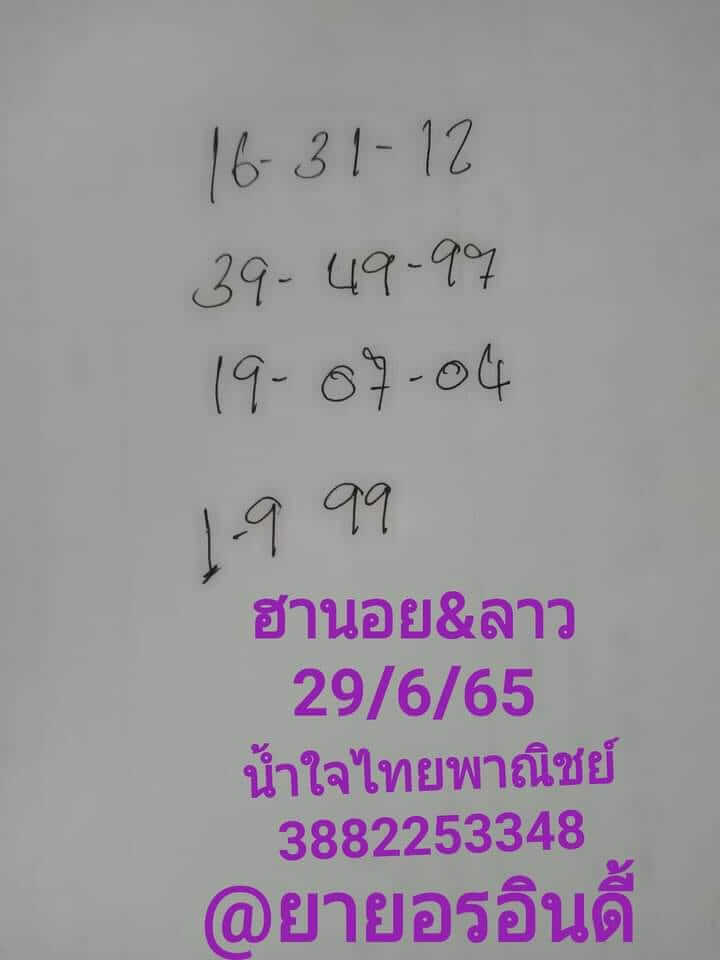 16-31-12
39-49-97
19-07-04
1-9 99
ฮานอย&ลาว
29/6/65
น้ำใจไทยพาณิชย์
3882253348
@ยายอรอินดี้